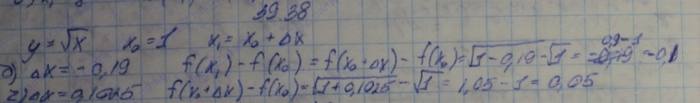 39.38
y = √x   x₀ = 1   x₁ = x₀ + Δx
б) Δx = -0,19   f(x₁) - f(x₀) = f(x₀+Δx) - f(x₀) = √1-0,19 - √1 = 0,9-1 = -0,1
г) Δx = 0,1025   f(x₀+Δx) - f(x₀) = √1+0,1025 - √1 = 1,05 - 1 = 0,05